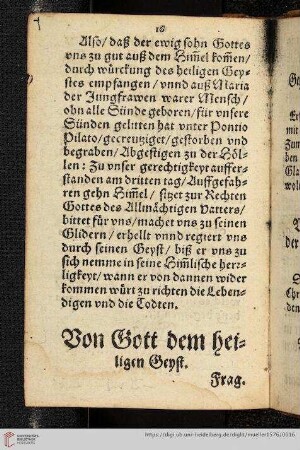 16
Also/ daß der ewig sohn Gottes
vns zu gut auß dem Him̃el kom̃en/
durch würckung des heiligen Gey-
stes empfangen/ vnnd auß Maria
der Jungfrawen warer Mensch/
ohn alle Sünde geboren/ für vnsere
Sünden gelitten hat vnter Pontio
Pilato/ gecreutziget/ gestorben vnd
begraben/ Abgestigen zu der Höl-
len: Zu vnser gerechtigkeyt auffer-
standen am dritten tag/ Auffgefah-
ren gehn Him̃el/ sitzet zur Rechten
Gottes des Allmächtigen Vatters/
bittet für vns/ machet vns zu seinen
Glidern/ erhelt vnnd regiert vns
durch seinen Geyst/ biß er vns zu
sich nemme in seine Him̃lische herr-
ligkeyt/ wann er von dannen wider
kommen würt zu richten die Leben-
digen vnd die Todten.
Von Gott dem hei-
ligen Geyst.
Frag.
https://digi.ub.uni-heidelberg.de/diglit/mueller1576/0016